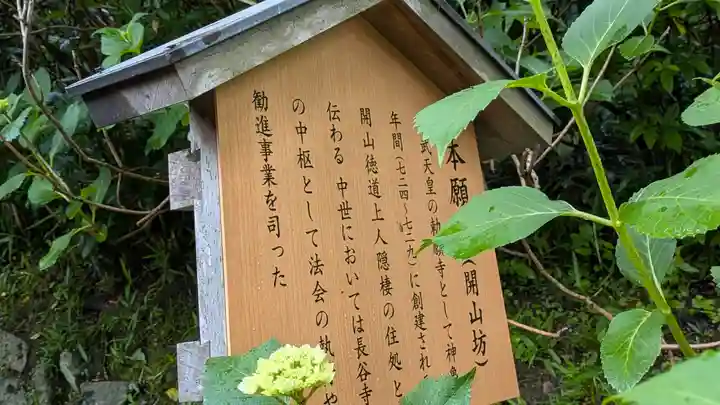 本願 (開山坊)
武天皇の勅願寺として神亀
年間(七二四〜七二九)に創建され
開山徳道上人隠棲の住処と
伝わる 中世においては長谷寺
の中枢として法会の執 や
勧進事業を司った